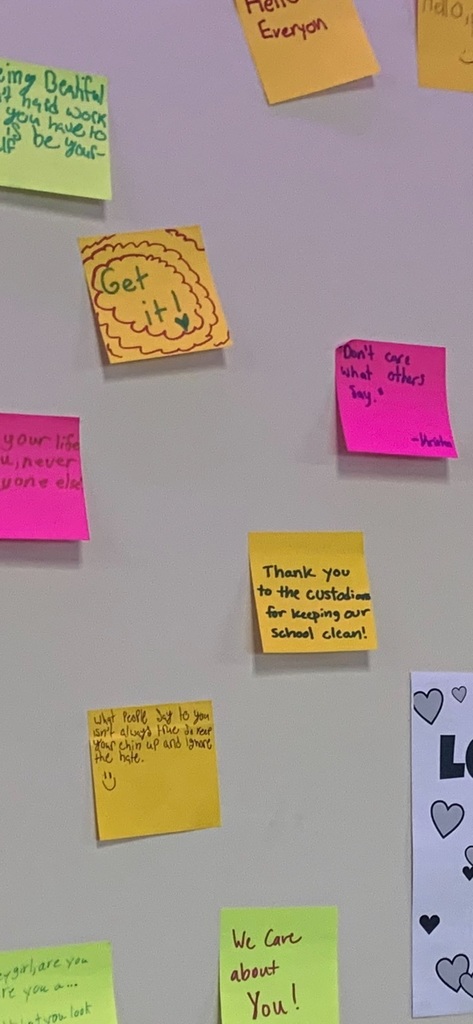 Hello
Everyon
Hello,
ing Beatiful
hard work
you have to
is be your-
Get
it!
"Don't care
what others
say."
your life
u, never
yone else
Thank you
to the custodians
for keeping our
school clean!
What People Say to you
isn't always true so keep
your chin up and ignore
the hate.
We Care
about
You!
girl, are you
re you a...
you look